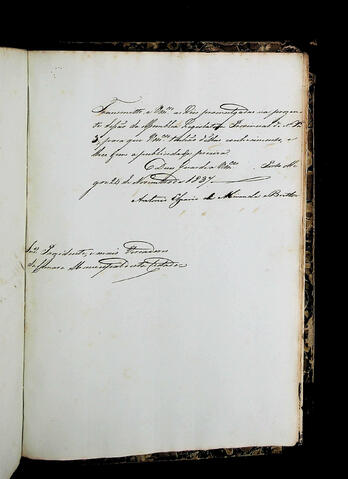 Transmitto a Vm.ces as Leis promulgadas na presen-
te Sessão da Assemblea Legislativa Provincial de N.º
3, para que Vm.ces tenhão dellas conhecimento, e
lhes fação a publicidade precisa.
Deos Guarde a Vm.ces Porto Ale-
gre 23 de Novembro de 1837
Antonio de Miranda e Britto
Presidente, e mais Vereadores
da Camara Municipal desta Cidade